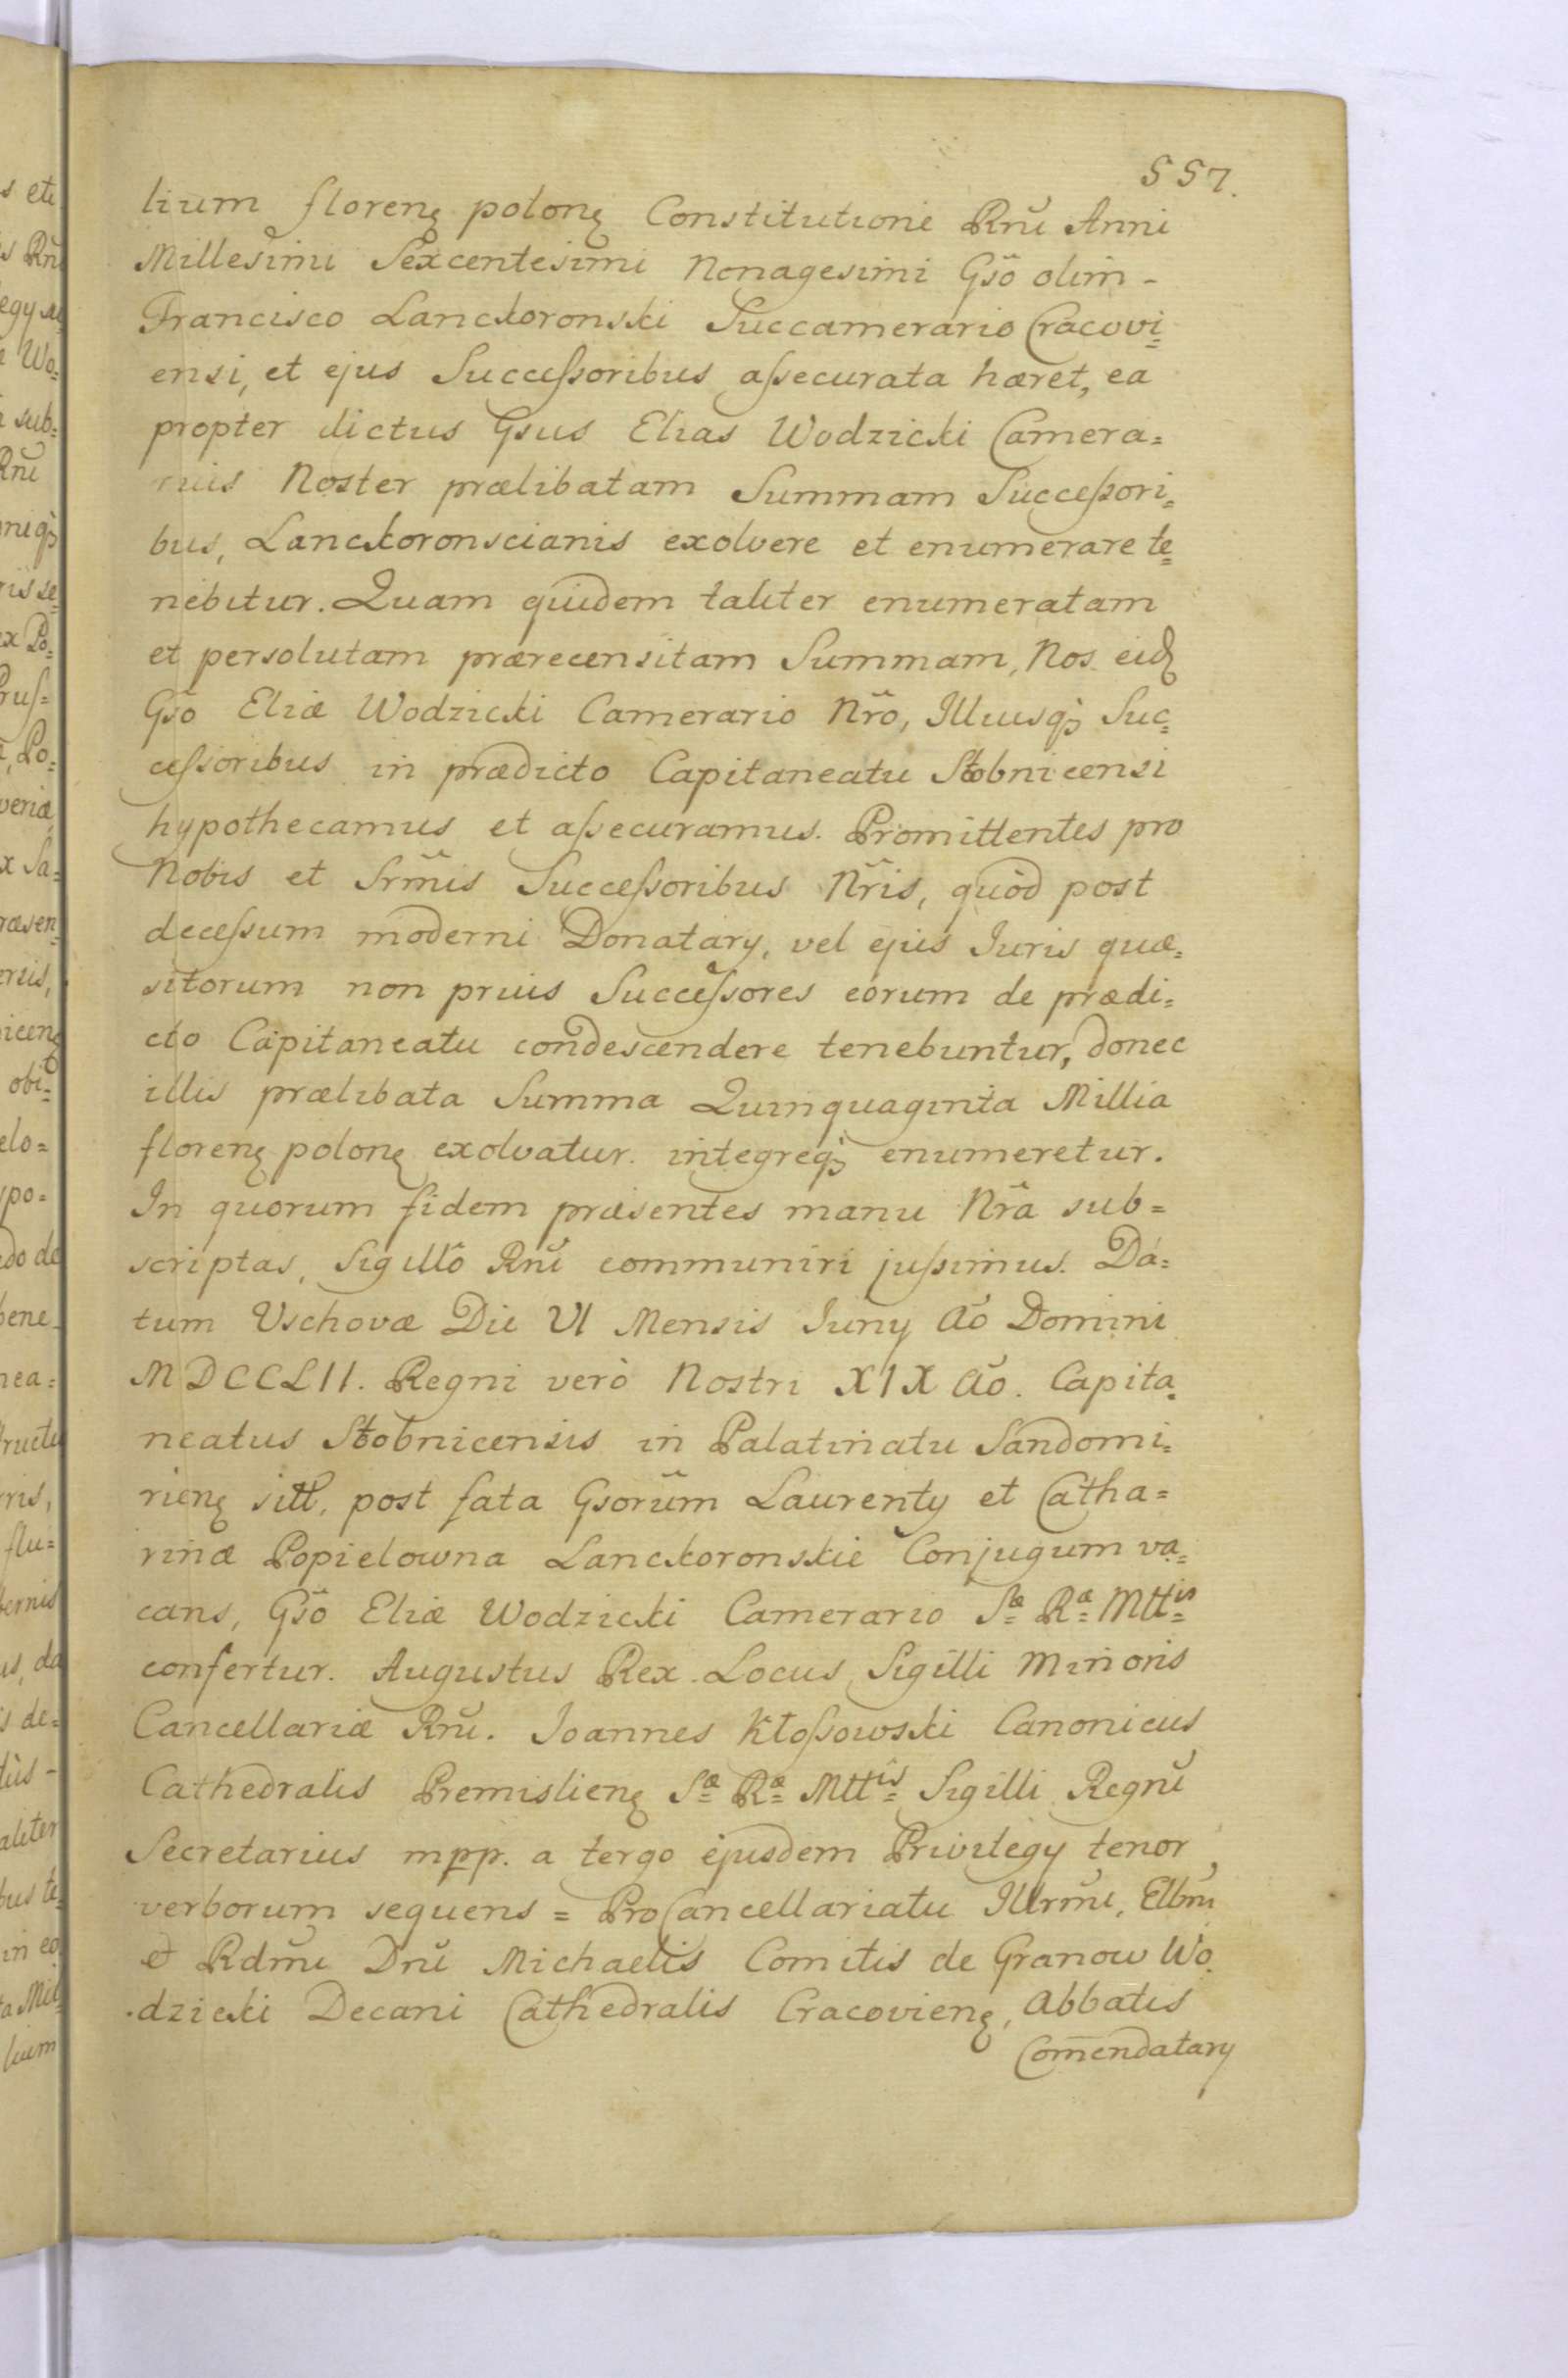 557.
lium florenꝫ polonꝫ Constitutione Rnĩ Anni
Millesimi Sexcentesimi Nonagesimi Gsõ olim -
Francisco Lanckoronski Succamerario Cracovi=
ensi, et ejus Succeſsoribus aſsecurata hæret, ea
propter dictus Gsus Elias Wodzicki Camera=
rius Noster prælibatam Summam Succeſsori=
bus, Lanckoronscianis exolvere et enumerare te=
nebitur. Quam quidem taliter enumeratam
et persolutam prærecensitam Summam, Nos eidꝫ
Gsõ Eliæ Wodzicki Camerario Nrõ, Illiusqꝫ Suc=
ceſsoribus in prædicto Capitaneatu Stobnicensi
hypothecamus et aſsecuramus. Promittentes pro
Nobis et Srm̃is Succeſsoribus Nr̃is, quòd post
deceſsum moderni Donatarÿ, vel ejus Juris quæ=
sitorum non prius Succeſsores eorum de prædi=
cto Capitaneatu condescendere tenebuntur, donec
illis prælibata Summa Quinquaginta Millia
florenꝫ polonꝫ exolvatur. integreqꝫ enumeretur.
In quorum fidem præsentes manu Nrã sub=
scriptas, Sigillô Rnĩ communiri juſsimus. Da=
tum Vschovæ Die VI Mensis Junÿ Aõ Domini
MDCCLII. Regni verò Nostri XIX Aõ. Capita=
neatus Stobnicensis in Palatinatu Sandomi=
rienꝫ sitt, post fata Gsorũm Laurentÿ et Catha=
rinæ Popielowna Lanckoronskie Conjugum va=
cans, Gsõ Eliæ Wodzicki Camerario Sæ Ræ Mttis
confertur. Augustus Rex. Locus Sigilli Minoris
Cancellariæ Rnĩ. Joannes Kłoſsowski Canonicus
Cathedralis Premislienꝫ Sæ Ræ Mttis Sigilli Regni
Secretarius mpp. a tergo ejusdem Privilegÿ tenor
verborum sequens = ProCancellariatu Illrmĩ, Ellmĩ
et Rdmĩ Dnĩ Michaelis Comitis de Granow Wo=
dzicki Decani Cathedralis Cracovienꝫ, Abbatis
Com̃endatarÿ